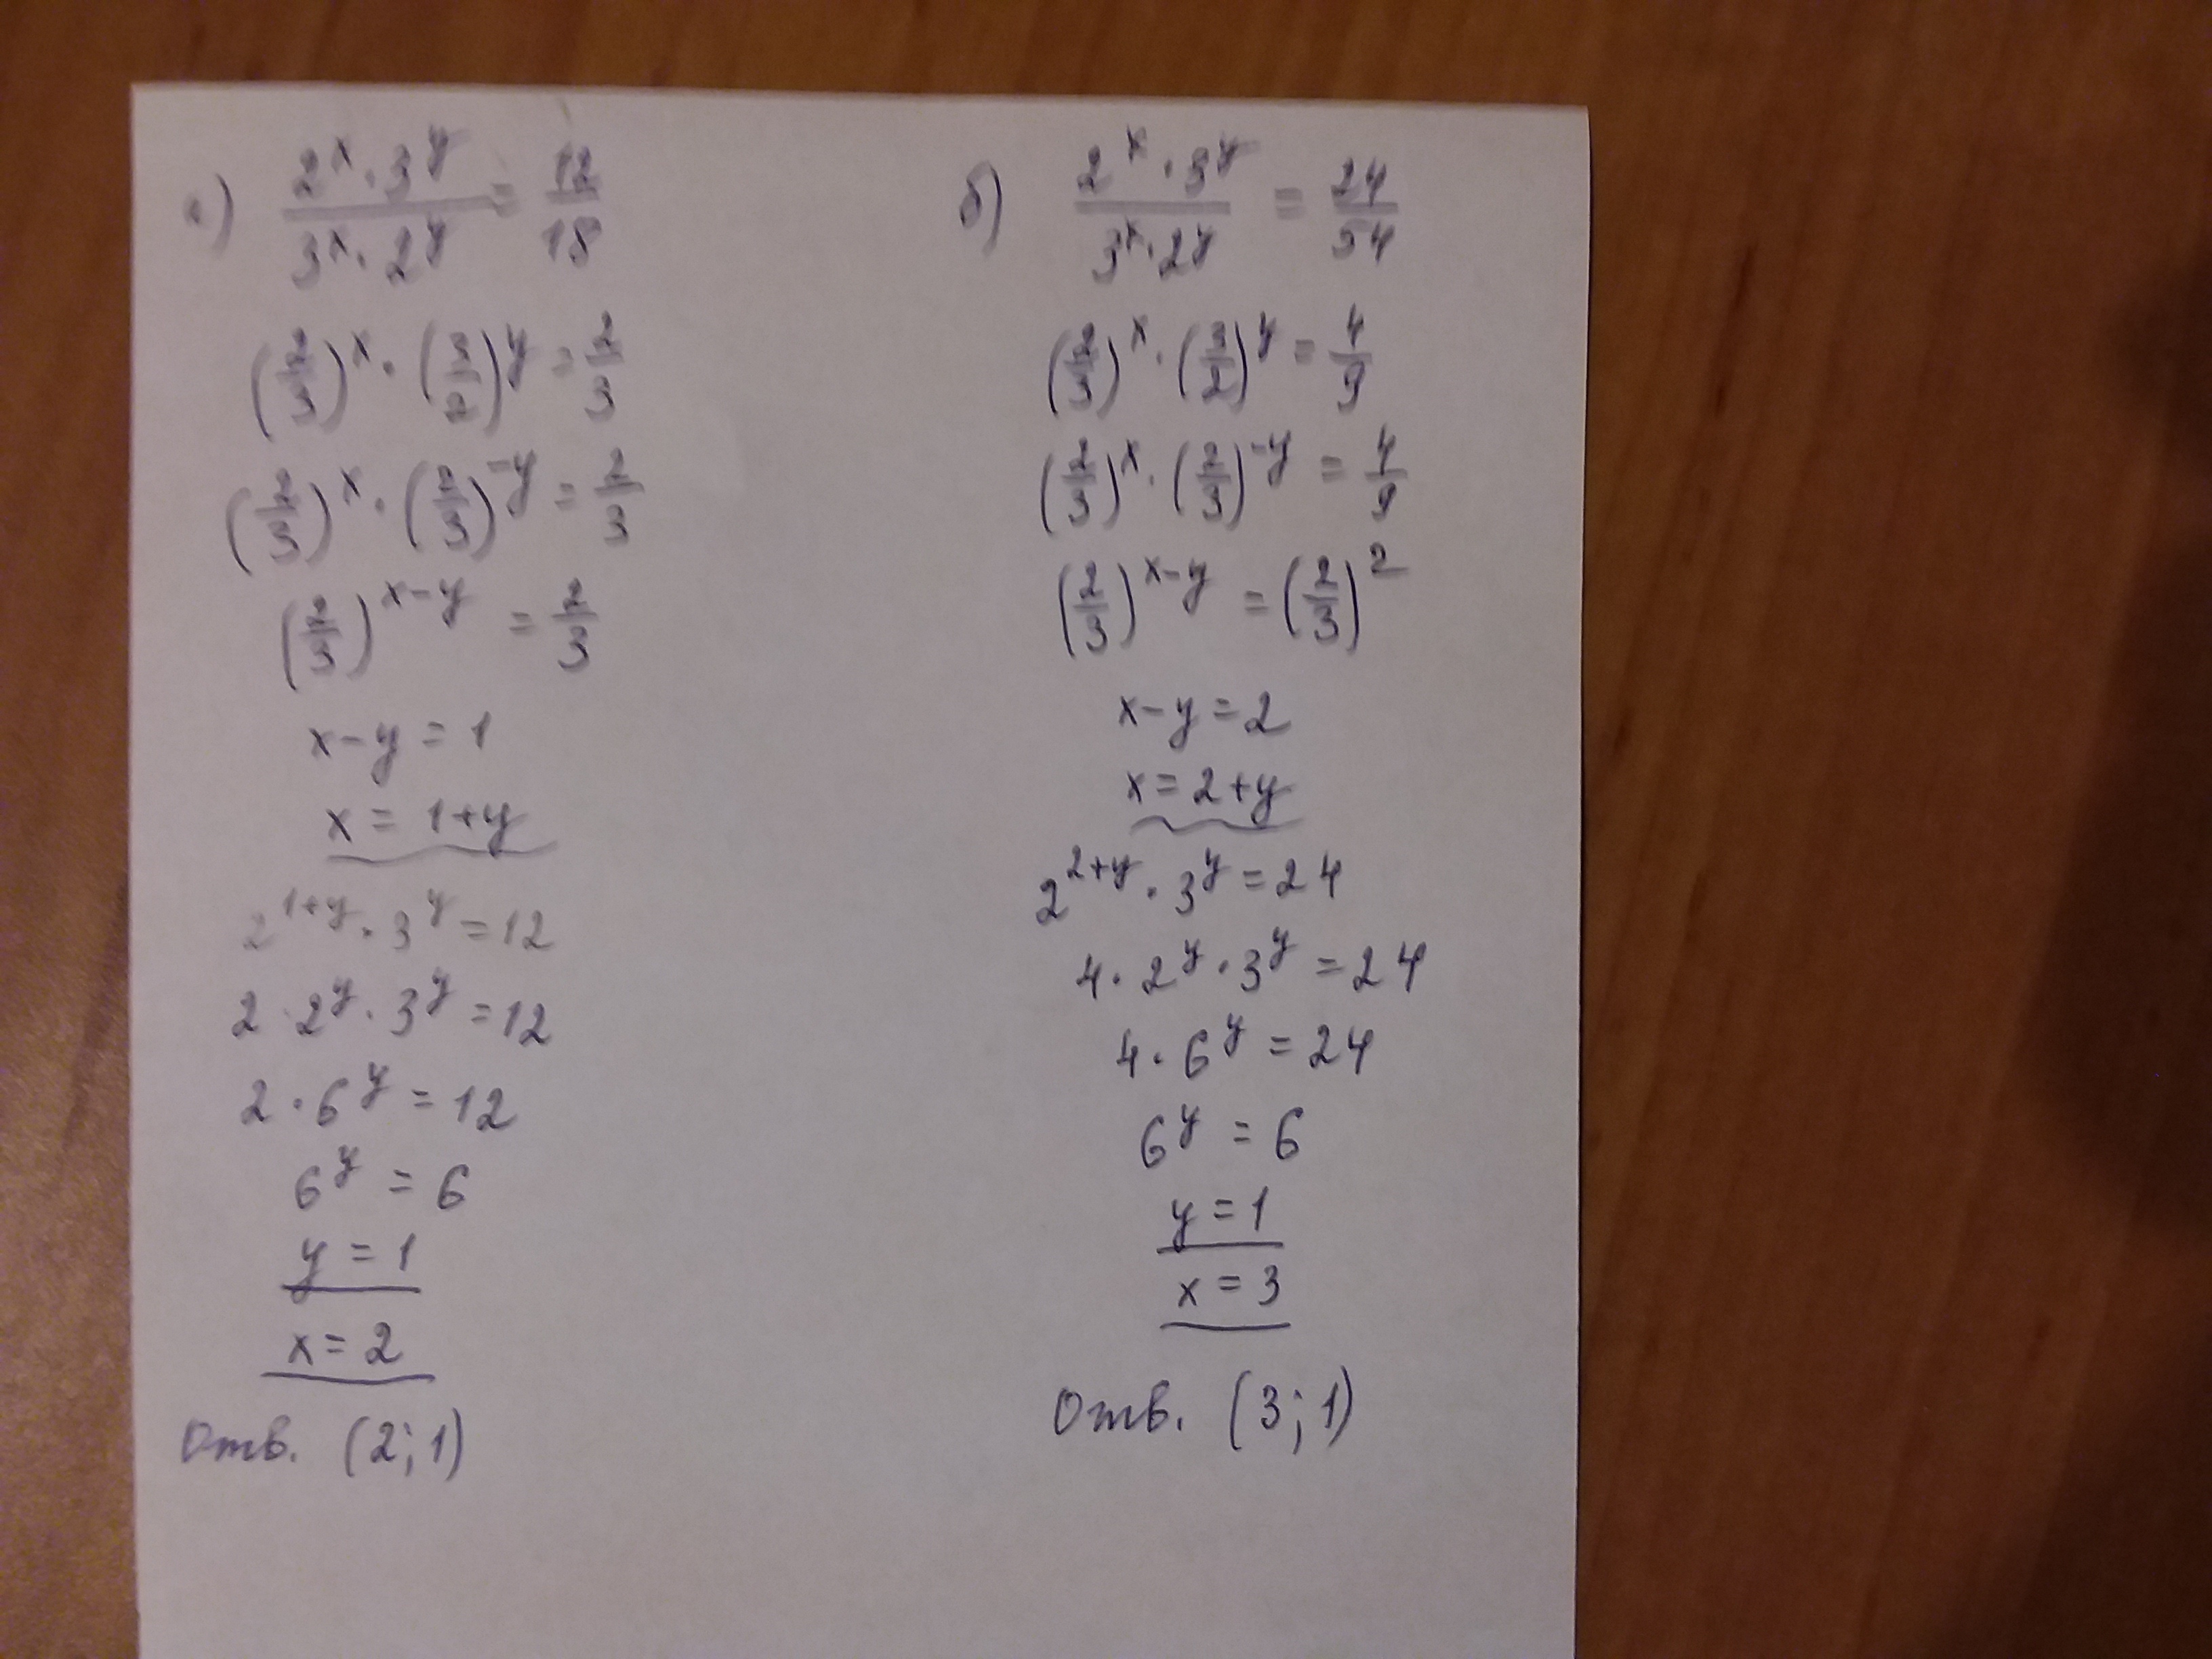 а) (2^x · 3^y)/(3^x · 2^y) = 12/18
(2/3)^x · (3/2)^y = 2/3
(2/3)^x · (2/3)^-y = 2/3
(2/3)^x-y = 2/3
x-y = 1
x = 1+y
2^1+y · 3^y = 12
2 · 2^y · 3^y = 12
2 · 6^y = 12
6^y = 6
y = 1
x = 2
Отв. (2; 1)
б) (2^x · 3^y)/(3^x · 2^y) = 24/54
(2/3)^x · (3/2)^y = 4/9
(2/3)^x · (2/3)^-y = 4/9
(2/3)^x-y = (2/3)^2
x-y = 2
x = 2+y
2^2+y · 3^y = 24
4 · 2^y · 3^y = 24
4 · 6^y = 24
6^y = 6
y = 1
x = 3
Отв. (3; 1)